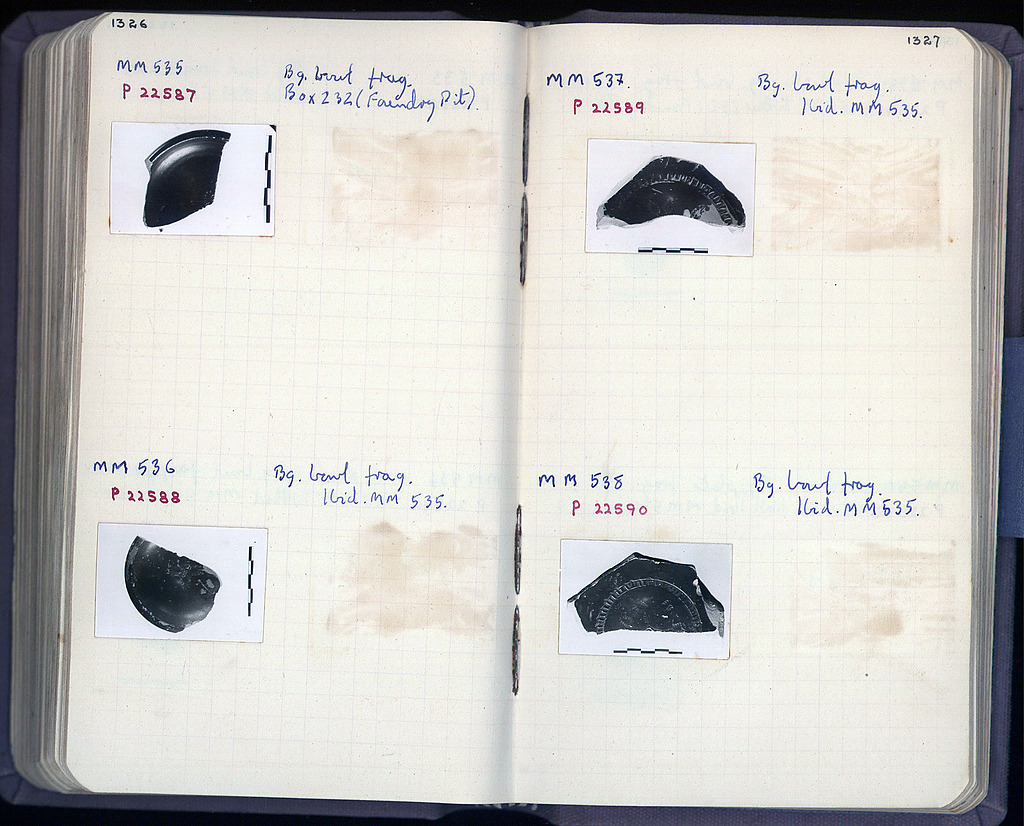 1326
MM 535
P 22587
Bg. bowl frag.
Box 232 (Foundry Pit).
MM 536
P 22588
Bg. bowl frag.
Ibid. MM 535.
1327
MM 537.
P 22589
Bg. bowl frag.
Ibid. MM 535.
MM 538
P 22590
Bg. bowl frag.
Ibid. MM 535.